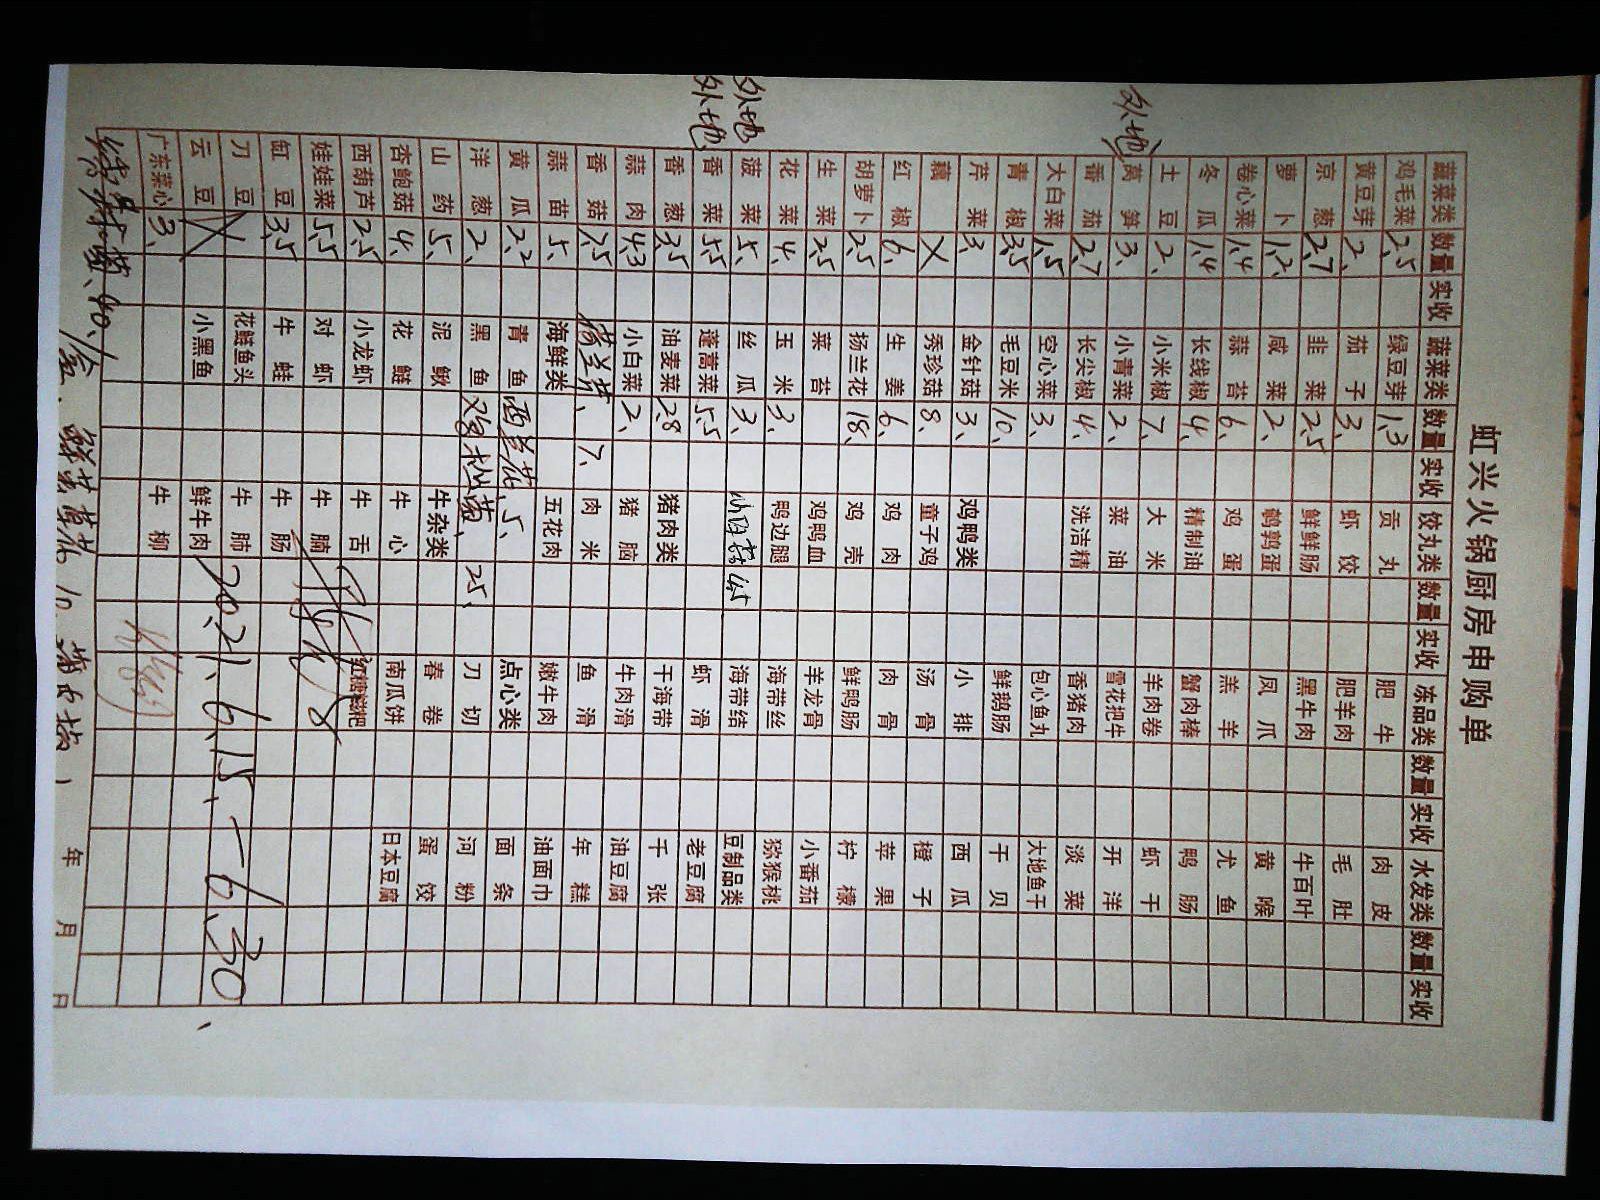 虹兴火锅厨房申购单
蔬菜类 数量 实收 蔬菜类 数量 实收 饺丸类 数量 实收 冻品类 数量 实收 水发类 数量 实收
鸡毛菜 2.5 绿豆芽 1.3 贡丸 肥牛 肉皮
黄豆芽 2、 茄子 3、 虾饺 肥羊肉 毛肚
京葱 2.7 韭菜 2.5 鲜鲜肠 黑牛肉 牛百叶
萝卜 1.2、 咸菜 2、 鹌鹑蛋 凤爪 黄喉
卷心菜 1.4 蒜苔 6、 鸡蛋 羔羊 尤鱼
冬瓜 1.4 长线椒 4、 精制油 蟹肉棒 鸭肠
土豆 2、 小米椒 7、 大米 羊肉卷 虾干
外地 莴笋 3、 小青菜 2、 菜油 雪花把牛 开洋
番茄 2.7 长尖椒 4、 洗洁精 香猪肉 淡菜
大白菜 1.5 空心菜 3、 包心鱼丸 大地鱼干
青椒 3.5 毛豆米 10、 鲜鹅肠 干贝
芹菜 3、 金针菇 3、 鸡鸭类 小排 西瓜
藕 X 秀珍菇 8、 童子鸡 汤骨 橙子
红椒 6、 生姜 6、 鸡肉 肉骨 苹果
胡萝卜 2.5 扬兰花 18、 鸡壳 鲜鸭肠 柠檬
生菜 2.5 菜苔 鸡鸭血 羊龙骨 小番茄
花菜 4、 玉米 3、 鸭边腿 海带丝 猕猴桃
外地 菠菜 5、 丝瓜 3、 4.5 海带结 豆制品类
外地 香菜 5.5 蓬蒿菜 5.5 虾滑 老豆腐
香葱 3.5 油麦菜 2.8 猪肉类 干海带 千张
蒜肉 4.3 小白菜 2、 猪脑 牛肉滑 油豆腐
香菇 7、 肉米 鱼滑 年糕
蒜苗 5、 海鲜类 五花肉 嫩牛肉 油面巾
黄瓜 2.2 青鱼 西兰花、5、 点心类 面条
洋葱 2、 黑鱼 25、 刀切 河粉
山药 5、 泥鳅 牛杂类 春卷 蛋饺
杏鲍菇 4、 花鲢 牛心 南瓜饼 日本豆腐
西葫芦 2.5 小龙虾 牛舌 红糖糍粑
娃娃菜 5.5 对虾 牛腩
缸豆 3.5 牛蛙 牛肠
刀豆 花鲢鱼头 牛肺
云豆 X 小黑鱼 鲜牛肉 2021、6.15、—6.30、
广东菜心 3、 牛柳
年 月 日